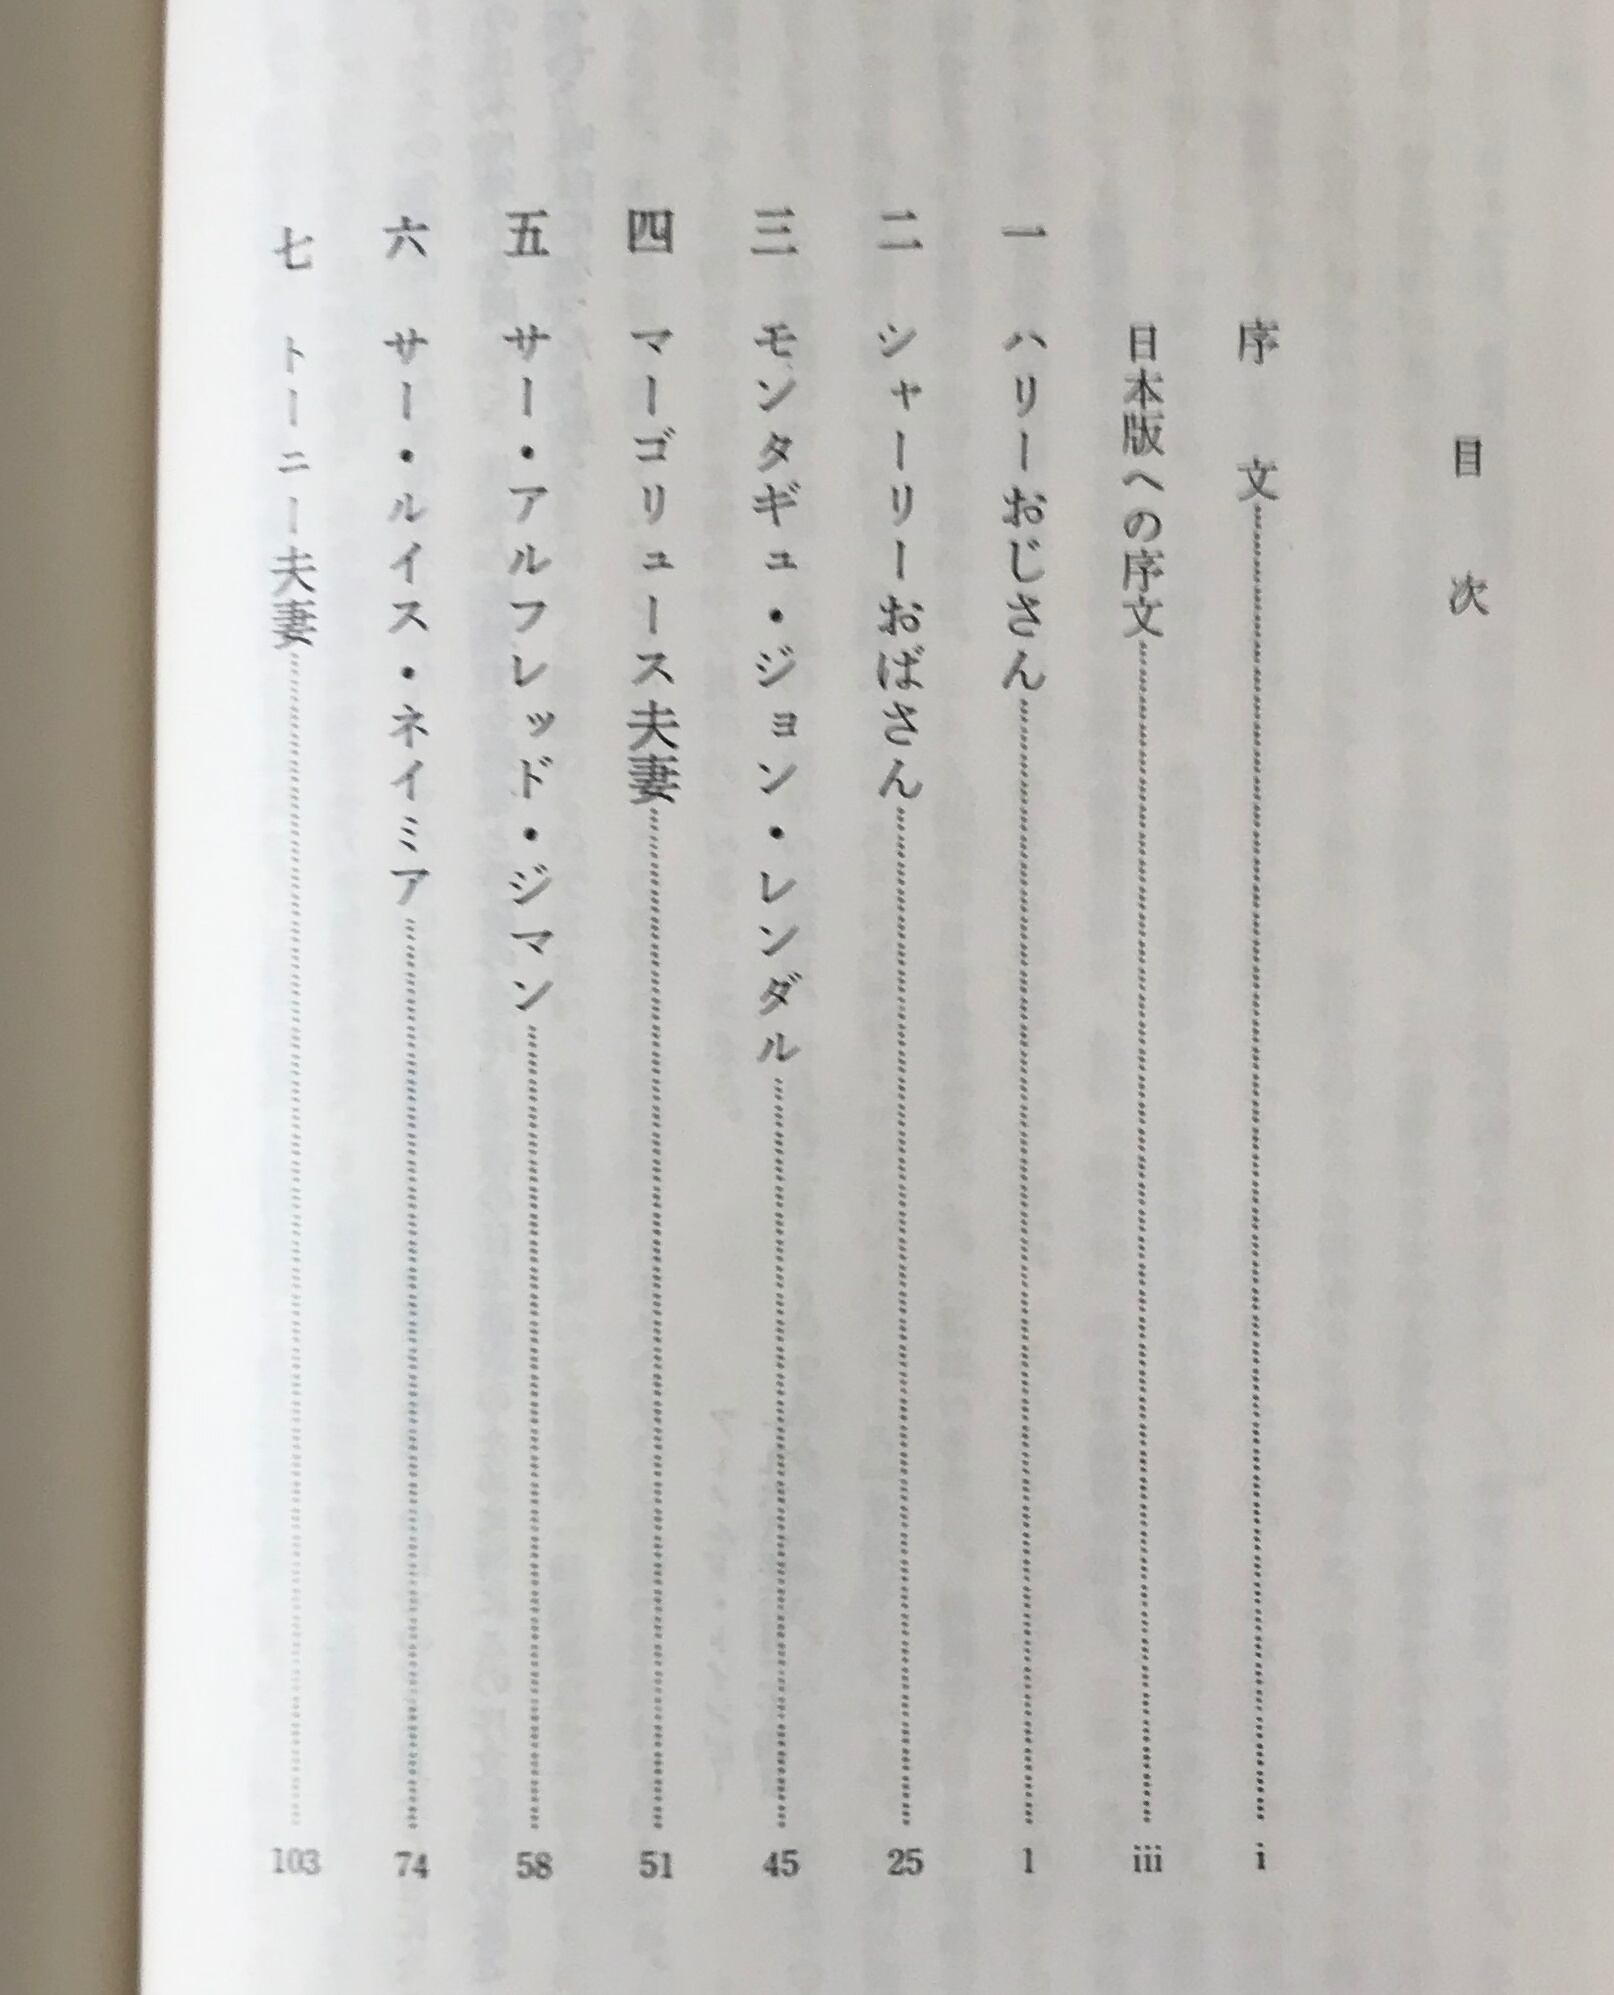 目次
序文……i
日本版への序文……iii
一 ハリーおじさん……1
二 シャーリーおばさん……25
三 モンタギュ・ジョン・レンダル……45
四 マーゴリュース夫妻……51
五 サー・アルフレッド・ジマン……58
六 サー・ルイス・ネイミア……74
七 トーニー夫妻……103